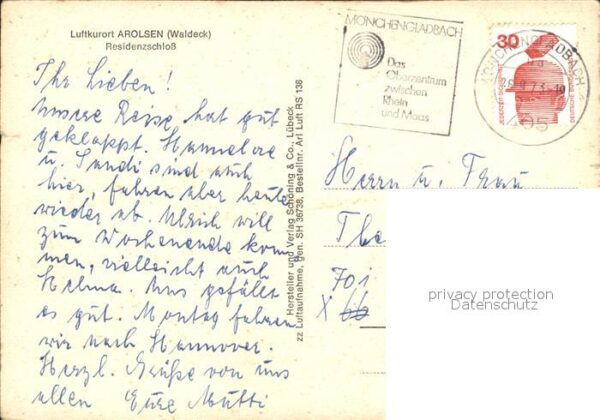 Luftkurort AROLSEN (Waldeck)
Residenzschloß
Ihr Lieben!
Unsere Reise hat gut
geklappt. Hannelore
u. Sandi sind auch
hier, fahren aber heute
wieder ab. Ulrich will
zum Wochenende kom
men, vielleicht auch
Helma. Uns gefällt
es gut. Montag fahren
wir nach Hannover.
Herzl. Grüße von uns
allen Eure Mutti
Hersteller und Verlag Schöning & Co., Lübeck
zz Luftaufnahme, gen. SH 36738, Bestellnr. Arl Luft RS 136
MÖNCHENGLADBACH
Das
Oberzentrum
zwischen
Rhein
und Maas
MÖNCHENGLADBACH
405
30
JEDERZEIT SICHERHEIT
DEUTSCHE BUNDESPOST
Herrn u. Frau
The
701
X 66
privacy protection
Datenschutz